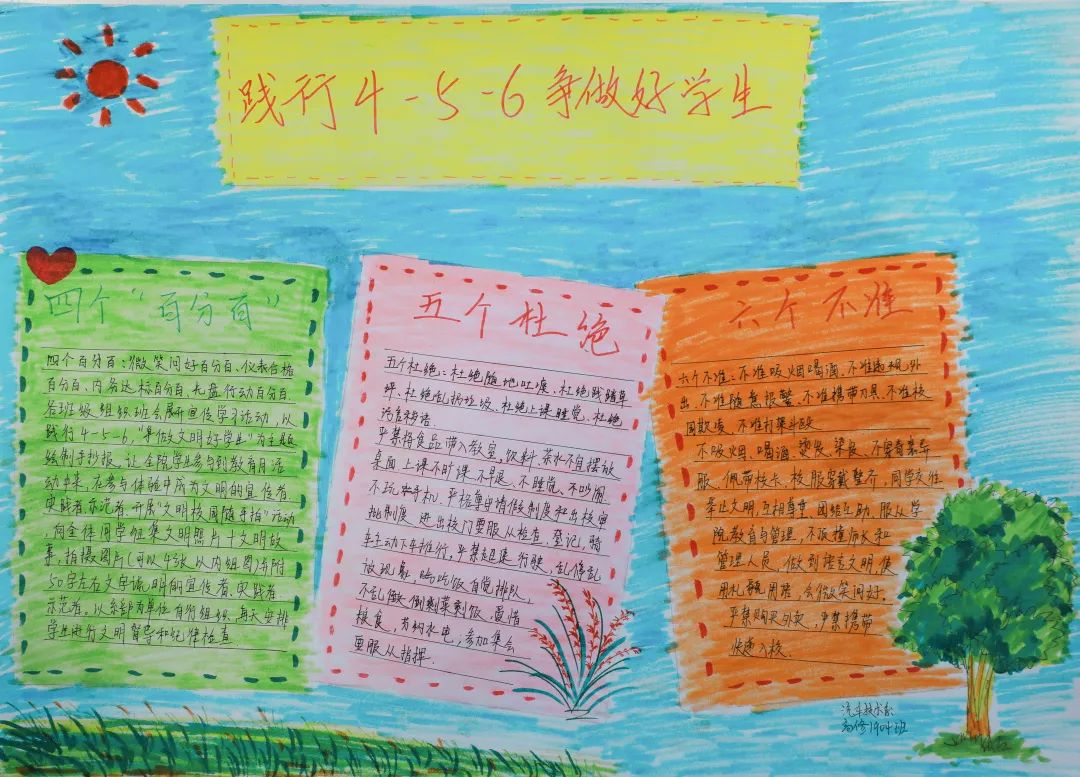 践行4-5-6争做好学生
四个“百分百”
四个百分百:微笑问好百分百、仪表合格
百分百、内务达标百分百、光盘行动百分百
各班级组织班会展开宣传学习活动,以
践行4-5-6,“争做文明好学生”为主题
绘制手抄报,让全院学生参与到教育月活
动中来,在参与体验中成为文明的宣传者、
实践者、示范者.开展“文明校园随手拍”活动
,向全体同学征集文明照片+文明故
事,拍摄图片(可以4张以内组图)并附
50字左右文字说明的宣传者、实践者
示范者,以系部为单位自行组织,每天安排
学生进行文明督导和纪律检查.
五个杜绝
五个杜绝:杜绝随地吐痰、杜绝践踏草
坪、杜绝乱扔垃圾、杜绝上课睡觉、杜绝
污言秽语.
严禁将食品带入教室,饮料、茶水不宜摆放
桌面上课不旷课、不早退、不睡觉、不吵闹
不玩手机,严格履行请假制度和出校审
批制度,进出校门要服从检查、登记,骑
车主动下车推行,严禁超速行驶,乱停乱
放现象,吃饭自觉排队,
不乱做倒剩菜剩饭.爱惜
粮食,节约水电,参加集会
要服从指挥.
六个不准
六个不准:不准吸烟喝酒、不准违规外
出、不准随意报警、不准携带刀具、不准校
园欺凌、不准打架斗殴
不吸烟、喝酒、烫发、染发、不穿奇装异
服、佩带校卡、校服穿戴整齐,同学交往
举止文明,互相尊重,团结互助,服从学
院教育与管理,不顶撞师长和
管理人员,做到语言文明,使
用礼貌用语,会微笑问好.
严禁购买外卖,严禁携带
快递入校.
汽车技术系
高修1904班